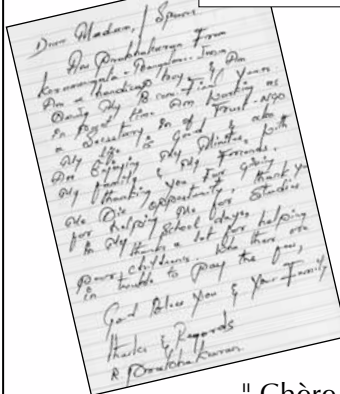 Dear Madam / Spons
Am Prabhakaran From
Koramangala - Bangalore - India
Am a handicap boy & Am
Doing My B.com - Final year.
In Present time Am working as
a Secretary in of Trust - NGO
My life is Good & also
Am Enjoying My Minutes, with
My family & My Friends.
thanking you For giving
Me Die opportunity, thank you
for helping Me for Studies
In My School days,
thanks a lot for helping
poor children. who there are
in trouble to pay the fees,
God Bless you & your Family
thanks & Regards
R Prabhakaran
" Chère